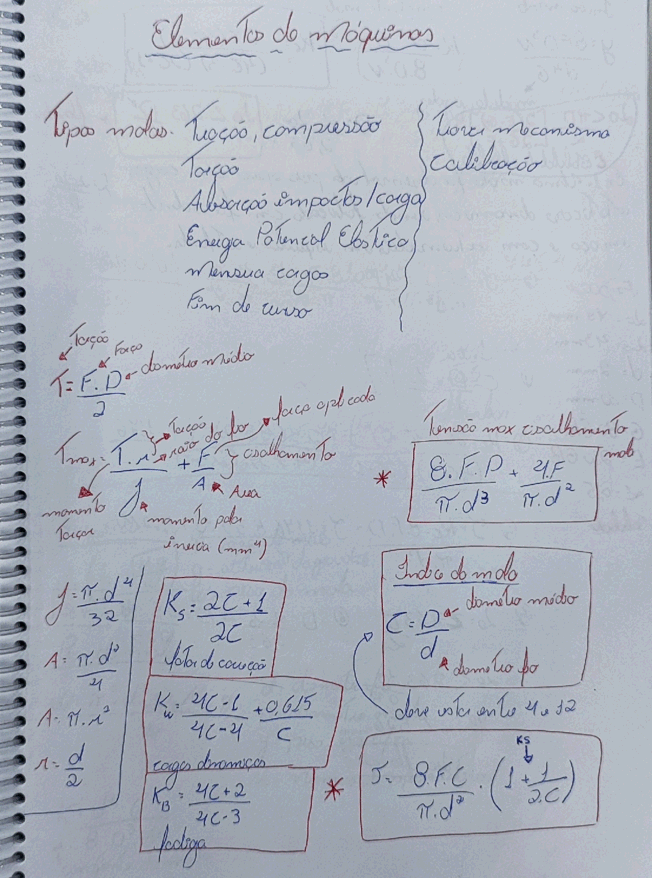 Elementos de máquinas
Tipos molas. Tração, compressão
Torção
Absorção impactos/carga
Energia Potencial Elástica
mensura cargas
Fim de curso
Travar mecanismo
calibração
Torção
Força
T = F.D / 2
diametro médio
Tmax = T.r / J + F / A
Torção
raio do fio
força aplicada
cisalhamento
Area
momento Torçor
momento polar
inercia (mm⁴)
Tensão max cisalhamento
mola
* 8.F.D / π.d³ + 4.F / π.d²
J = π.d⁴ / 32
A = π.d² / 4
A = π.r²
r = d / 2
Ks = 2C+1 / 2C
fator de correção
Kw = 4C-1 / 4C-4 + 0,615 / C
cargas dinamicas
KB = 4C+2 / 4C-3
fadiga
Indice de mola
C = D / d
diametro médio
diametro fio
deve estar entre 4 e 12
Ks
* J = 8.F.C / π.d² . (1 + 1 / 2.C)